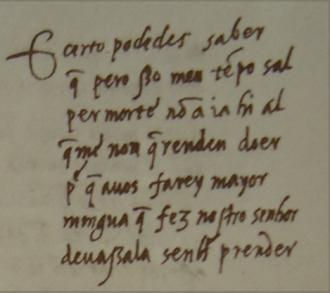 E certo podedes saber
q̃ pero ßo meu tẽpo sal
per morte nõ a ia hi al
q̃ me non q̃renden doer
p̃ q̃ auos farey mayor
mingua q̃ fez nostro senhor
deuaßala senhr̃ prender